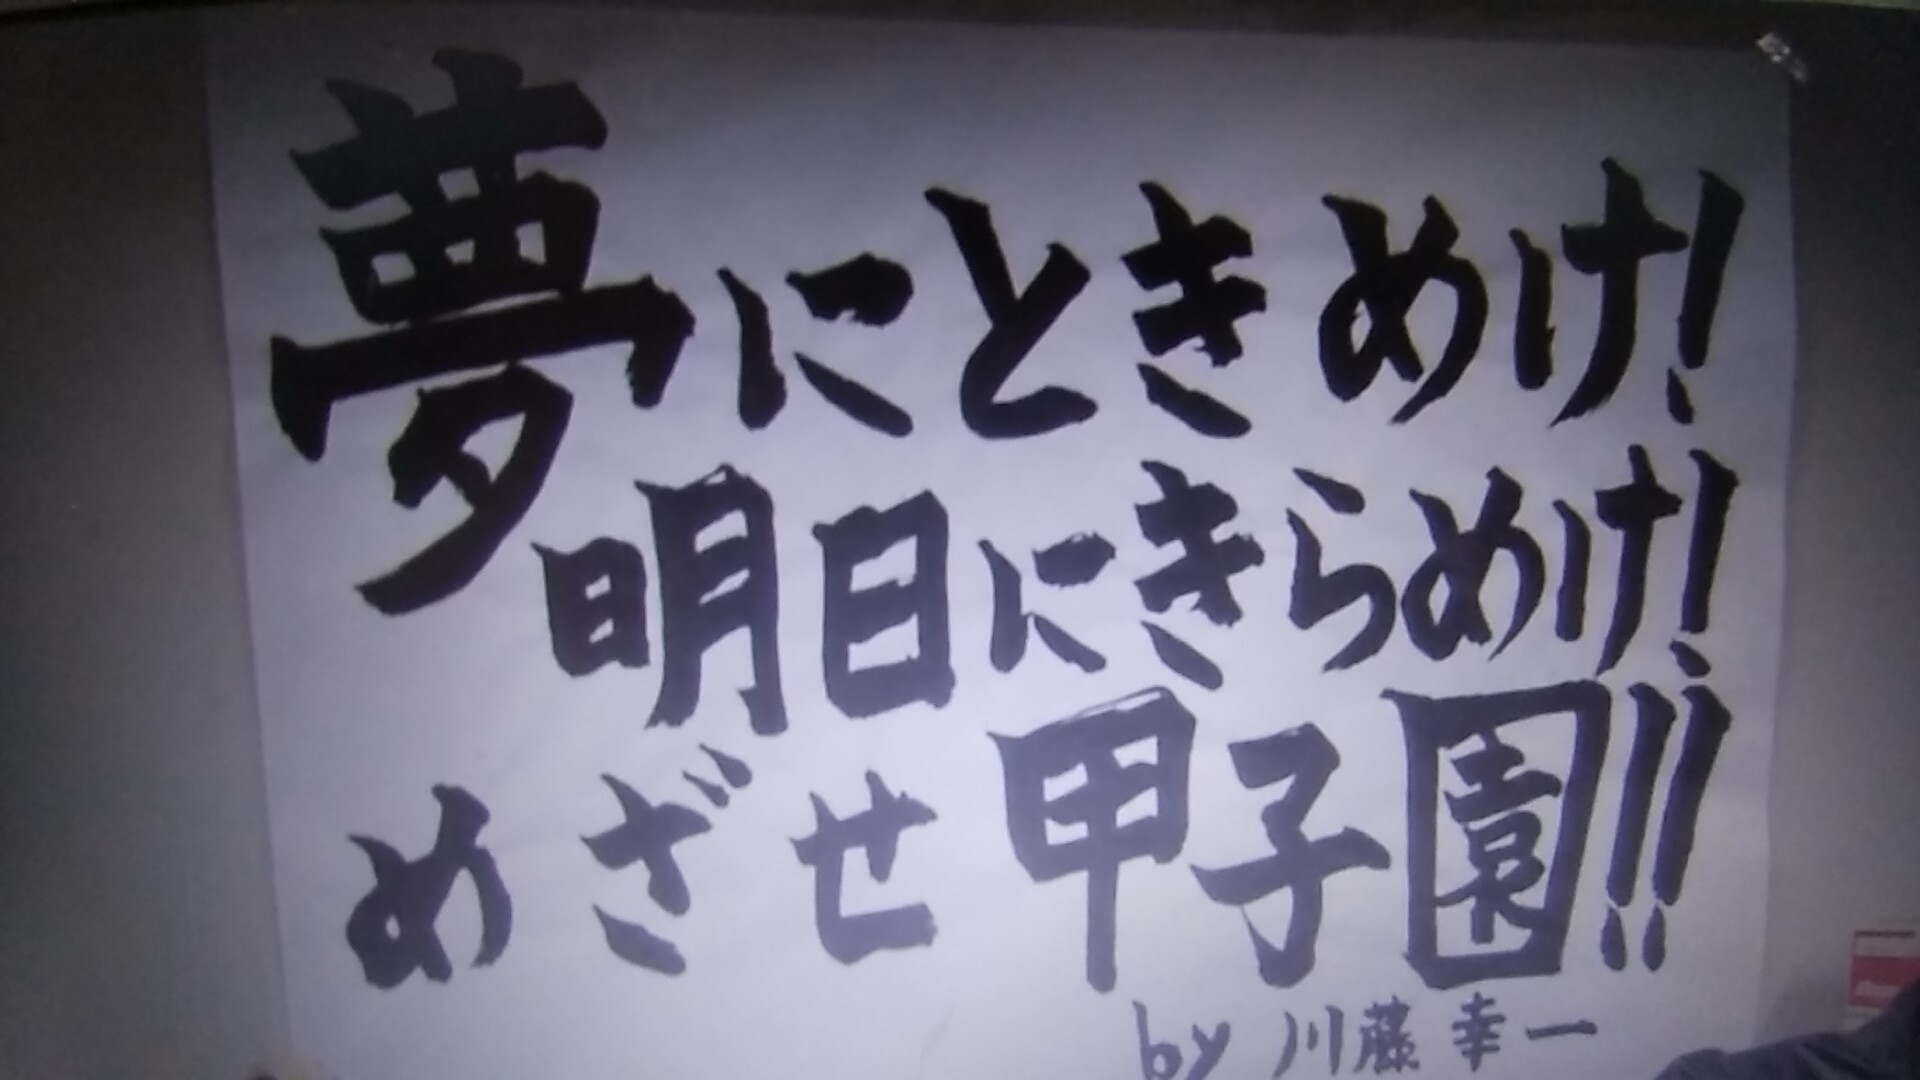 夢にときめけ!
明日にきらめけ!
めざせ甲子園!!
by 川藤幸一